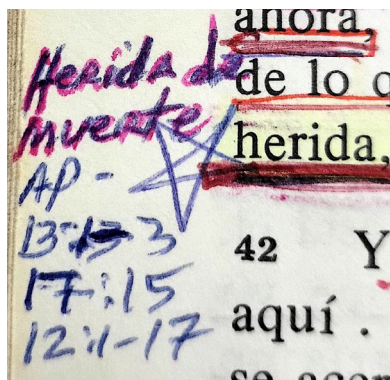 Herida de
muerte
AP-
13:3
17:15
12:1-17
ahora,
de lo
herida,
42 Y
aquí .